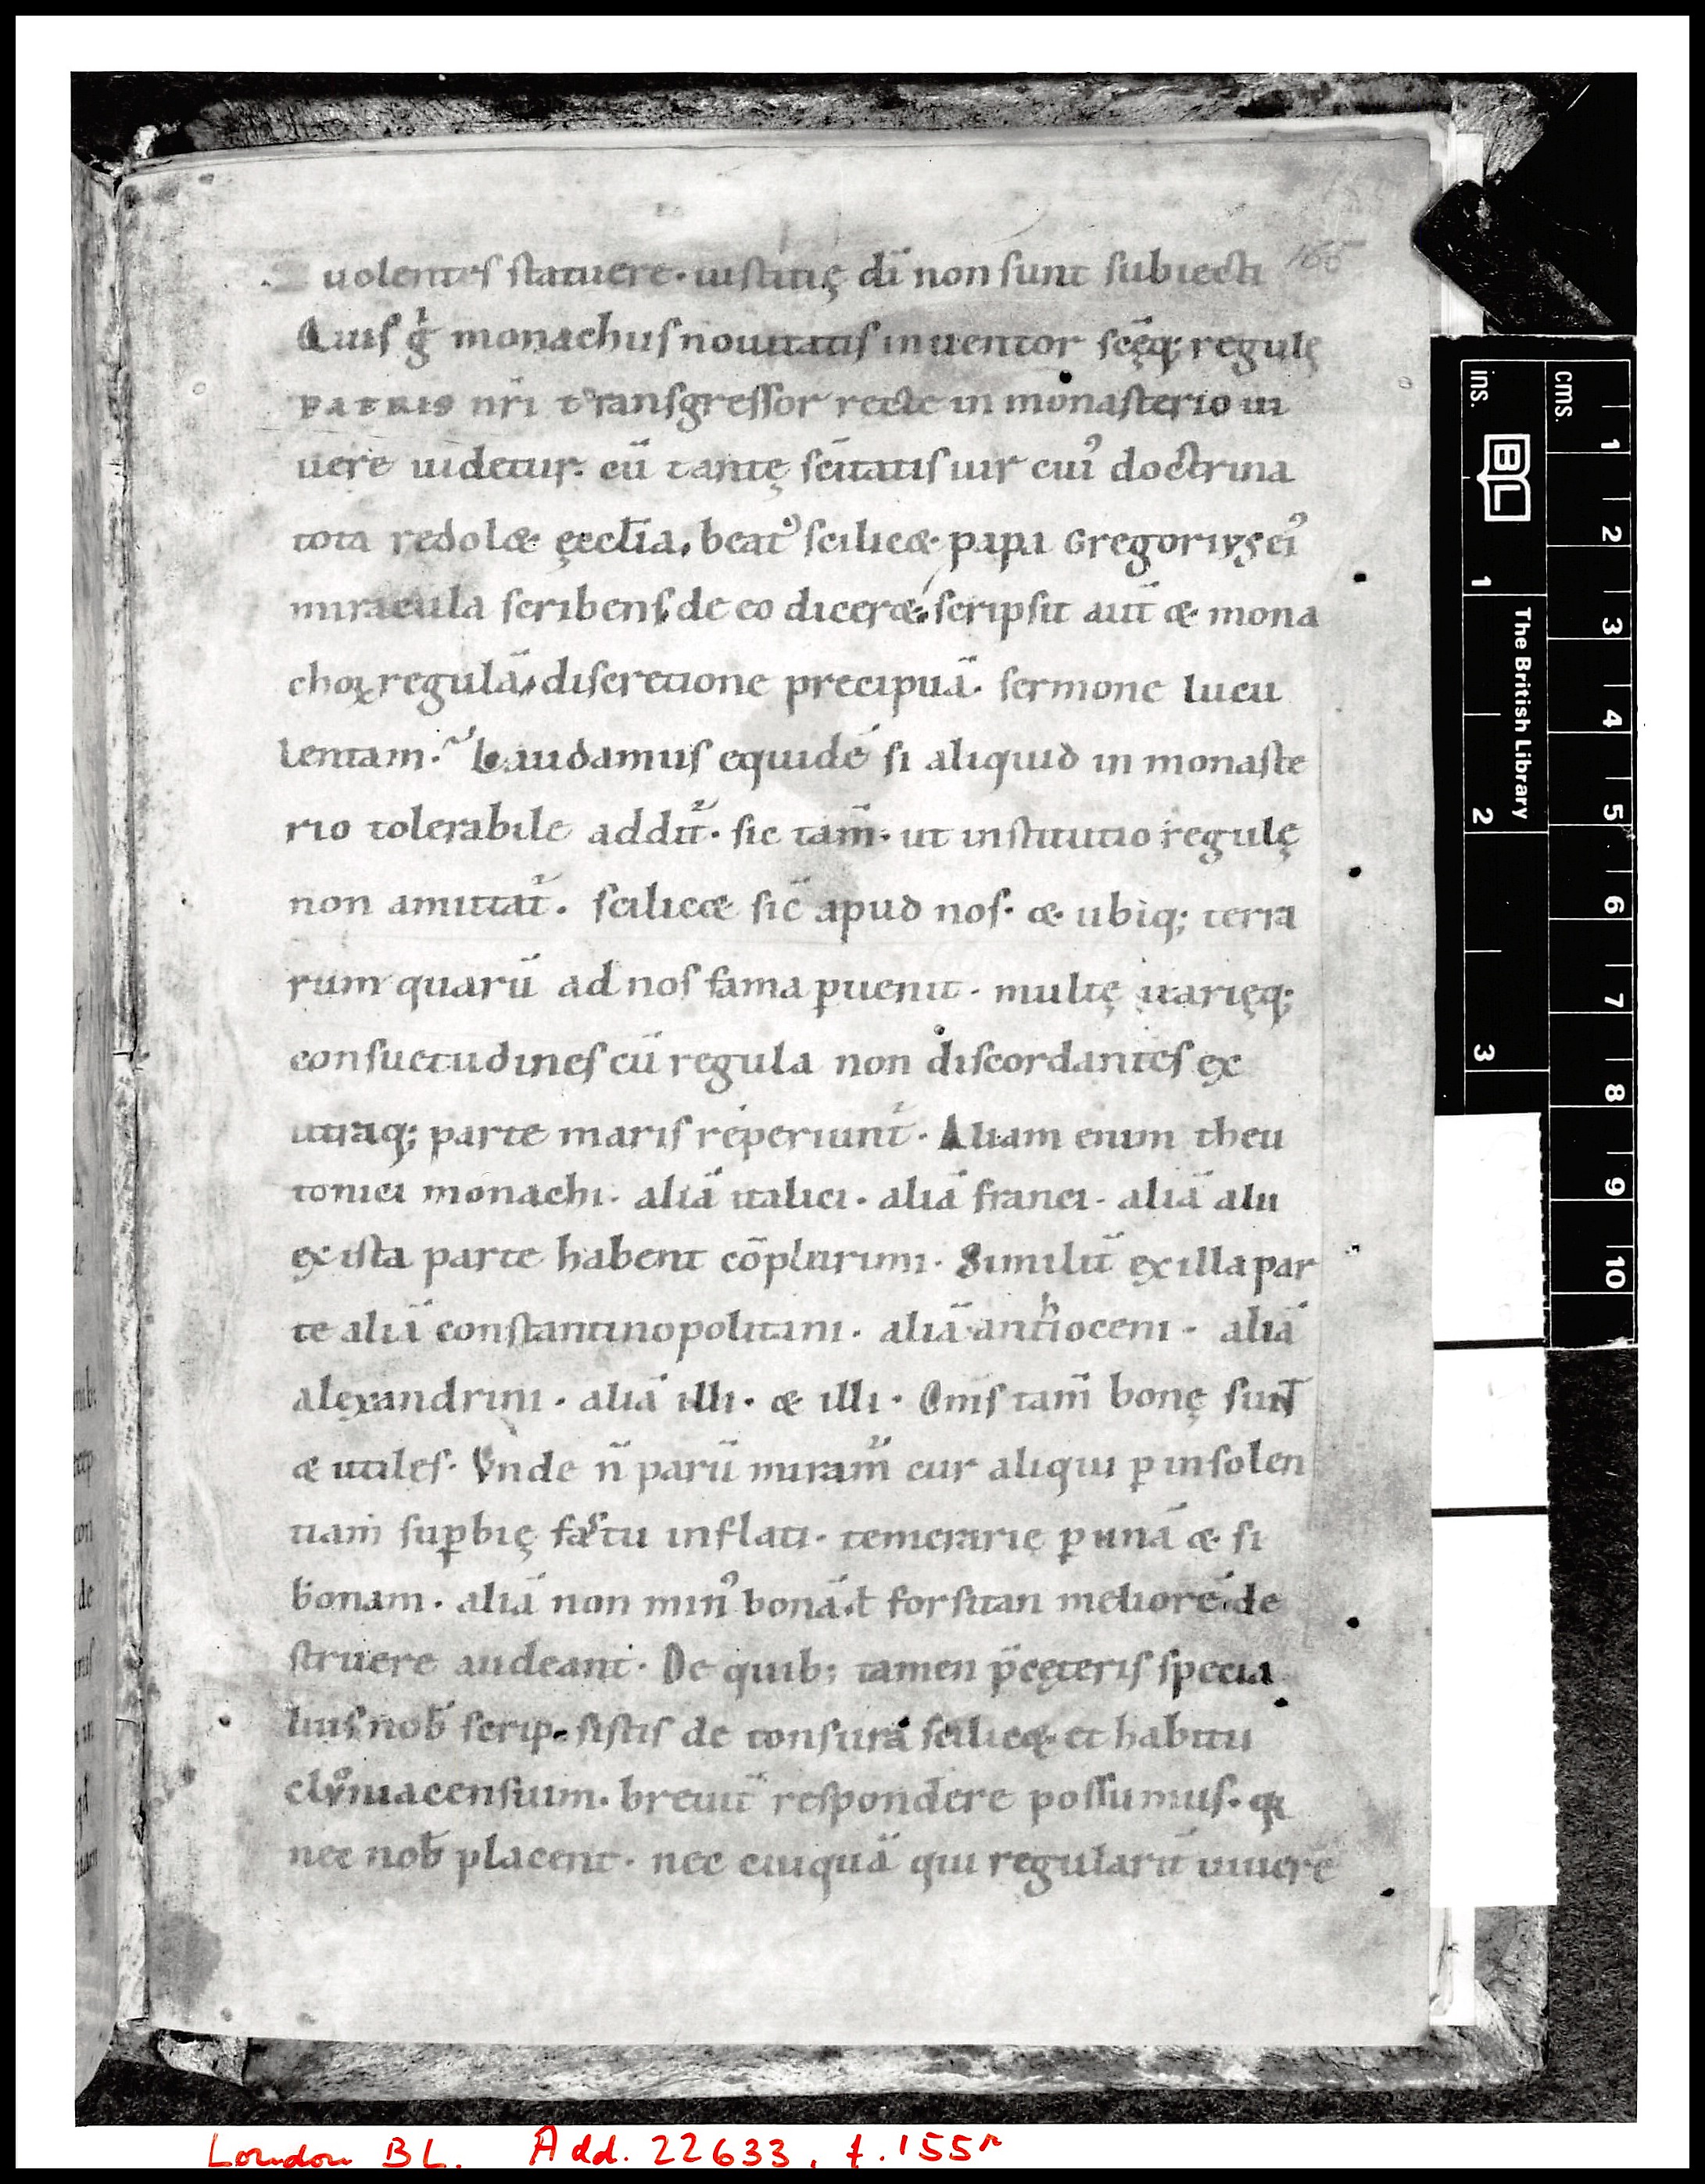 uolentes statuere· iustitię di̅ non sunt subiecti
Quis g̊ monachus nouitatis inuentor sc̅ęq; regulę
PATRIS nr̅i transgressor recte in monasterio ui
uere uidetur· cu̅ tantę sc̅itatis uir cui᾿ doctrina
tota redolæ· ęccl̅ia, beat᾿ scilicæ· papa Gregorius ei᾿
miracula scribens, de eo diceræ· scripsit aut̅ æ· mona
choꝝ regula̅, discretione precipua̅· sermone lucu
lentam· Laudamus equide̅ si aliquid in monaste
rio tolerabile addit᷑· sic tam̅· ut institutio regulę
non amittat᷑· scilicæ sic̅ apud nos· æ· ubiq; terra
rum quaru̅ ad nos fama ꝑuenit· multę uarięq;
consuetudines cu̅ regula non discordantes ex
utraq; parte maris reperiunt᷑· Aliam enim theu
tonici monachi· alia̅ italici· alia̅ franci· alia̅ alii
ex ista parte habent co̅plurimi· Similit̅ ex illa par
te alia̅ constantinopolitani· alia̅ anthioceni· alia̅
alexandrini· alia̅ illi· æ illi· Om̅s tam̅ bonę sunt
æ utiles· Vnde n̅ paru̅ miram᷑ cur aliqui ꝑ insolen
tiam suꝑbię fastu inflati· temerarie ꝑ una̅ æ· si
bonam· alia̅ non min᾿ bona̅· ł forsitan meliore̅ de
struere audeant· De quib; tamen p̅ cęteris specia
lius nob̅ scrip sistis de tonsura scilicæ· et habitu
clỹniacensium· breuit̅ respondere possumus· qꝛ
nec nob̅ placent· nec cuiqua̅ qui regularit̅ uiuere
ins.
cms.
1
2
3
1
2
3
4
5
6
7
8
9
10
BL
The British Library
London BL. Add. 22633, f. 155r